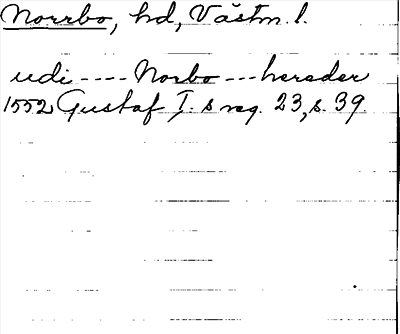 Norrbo, hd, Västm. l.
udi ---- Norbo --- hereder
1552 Gustaf I. s reg. 23, s. 39.